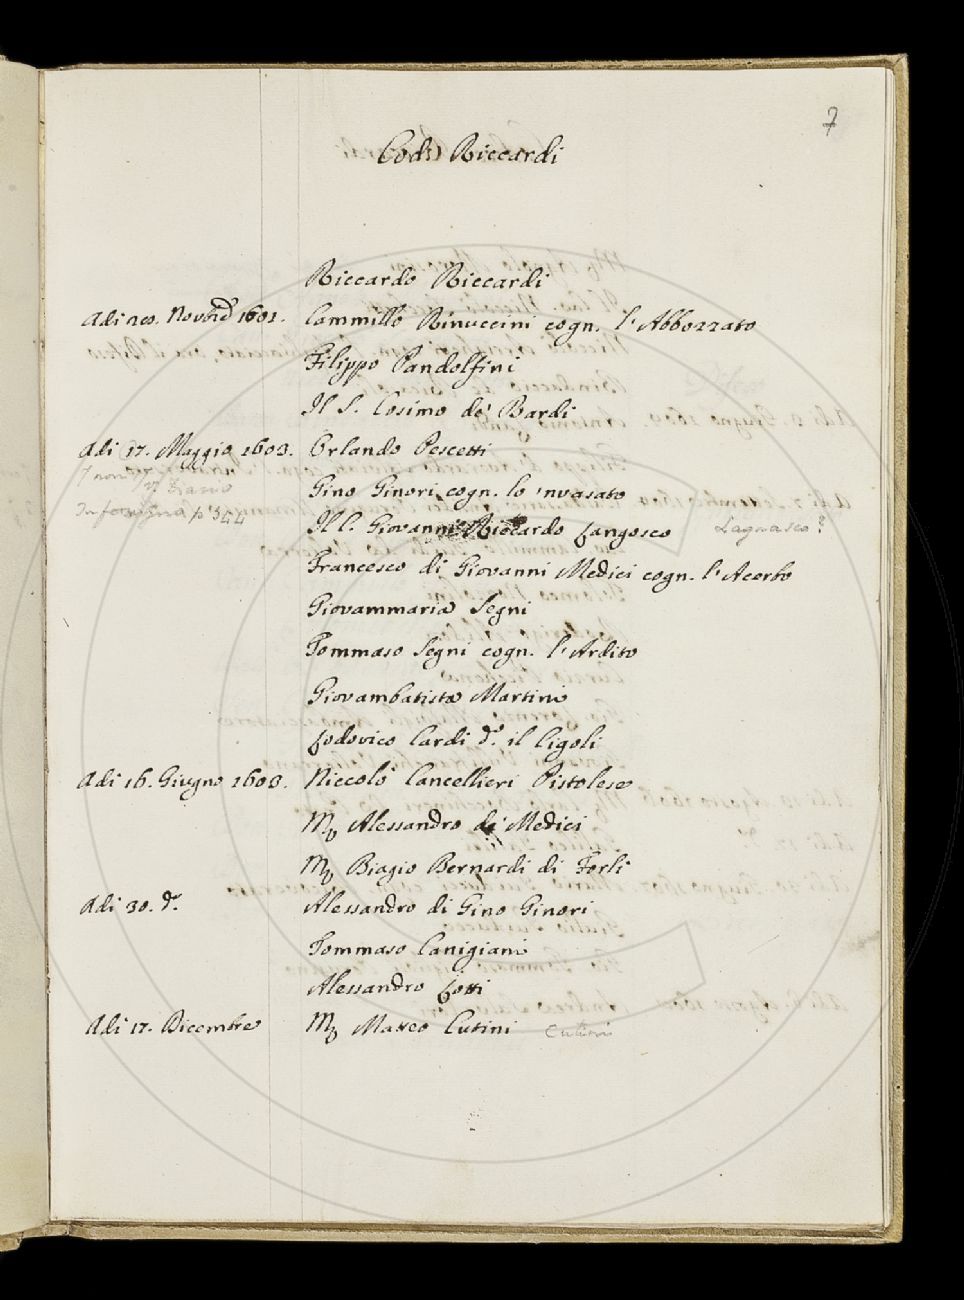 7
Cod. Riccardi
Riccardo Riccardi
Adi 20. Novbre 1601. Cammillo Rinuccini cogn. l'Abbozzato
Filippo Pandolfini
Il S. Cosimo de' Bardi
Adi 17. Maggio 1603. Orlando Pescetti
Gino Ginori cogn. lo 'nvasato
Il C. Giovanni Riccardo Langosco Lagnasco?
p. 344
Francesco di Giovanni Medici cogn. l'Acerbo
Giovammaria Segni
Tommaso Segni cogn. l'Ardito
Giovambatista Martini
Lodovico Cardi do. il Cigoli
Adi 16. Giugno 1603. Niccolò Cancellieri Pistolese
M. Alessandro de' Medici
M. Biagio Bernardi di Forlì
Adi 30. do. Alessandro di Gino Ginori
Tommaso Canigiani
Alessandro Lotti
Adi 17. Dicembre M. Matteo Cutini Cutini